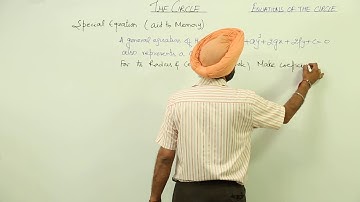 THE CIRCLE
EQUATIONS OF THE CIRCLE
Special Equation (aid to Memory)
A general equation of +ay²+2gx+2fy+c=0
also represents a
For its Radius & Make coefficient